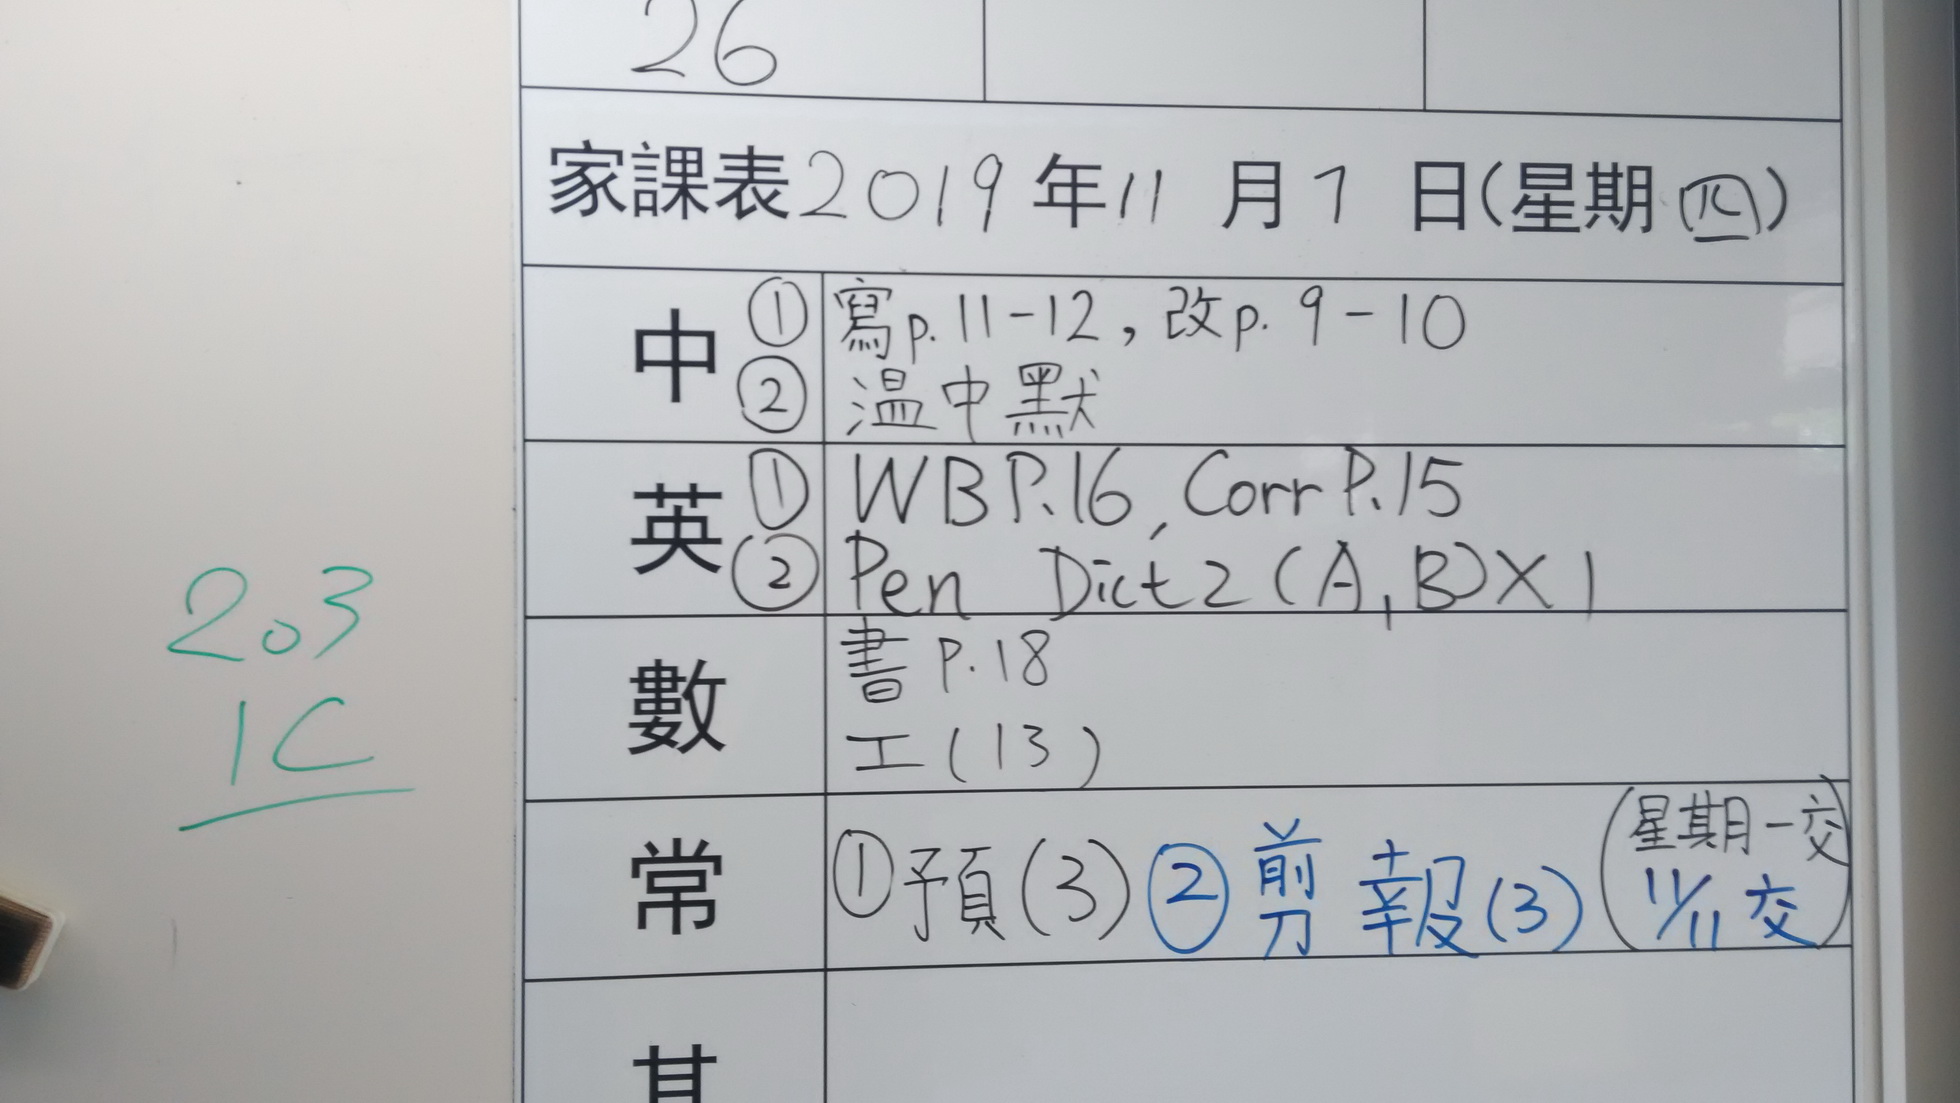 26
家課表2019年11月7日(星期四)
中 ① 寫p.11-12,改p.9-10
② 溫中默
英 ① WB P.16, Corr P.15
② Pen Dict 2 (A, B) X 1
數 書 P.18
工(13)
常 ①預(3) ②剪報(3) (星期一交
11/11交)
203
1C